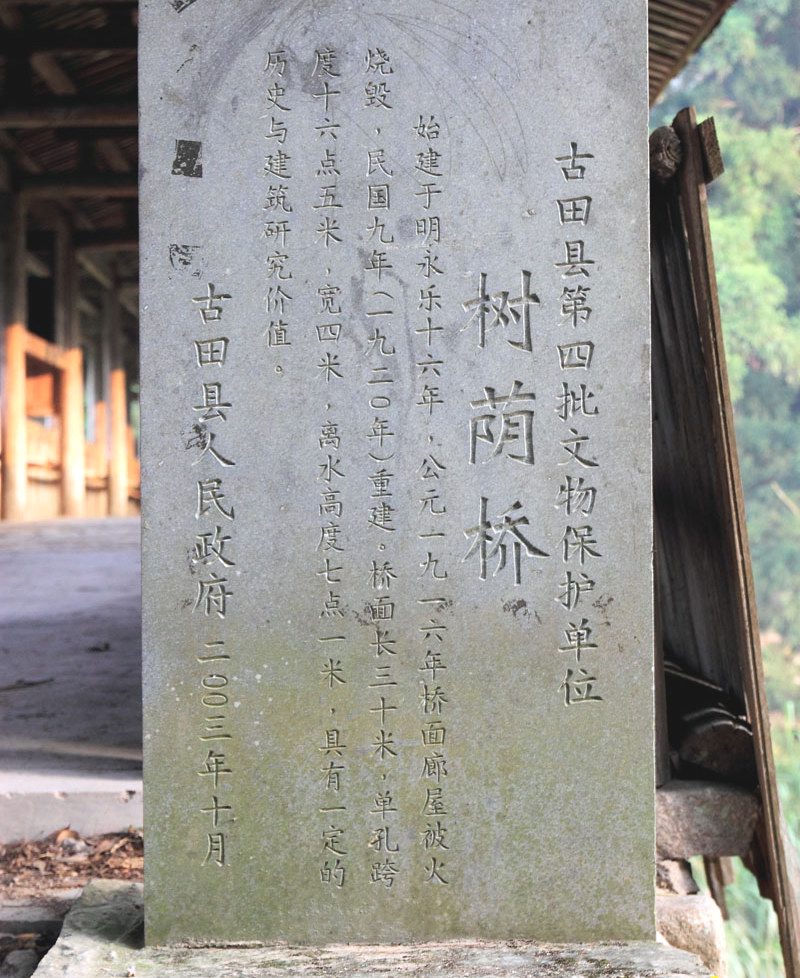 古田县第四批文物保护单位
树荫桥
始建于明永乐十六年，公元一九一六年桥面廊屋被火
烧毁，民国九年（一九二〇年）重建。桥面长三十米，单孔跨
度十六点五米，宽四米，离水高度七点一米，具有一定的
历史与建筑研究价值。
古田县人民政府 二〇〇三年十月